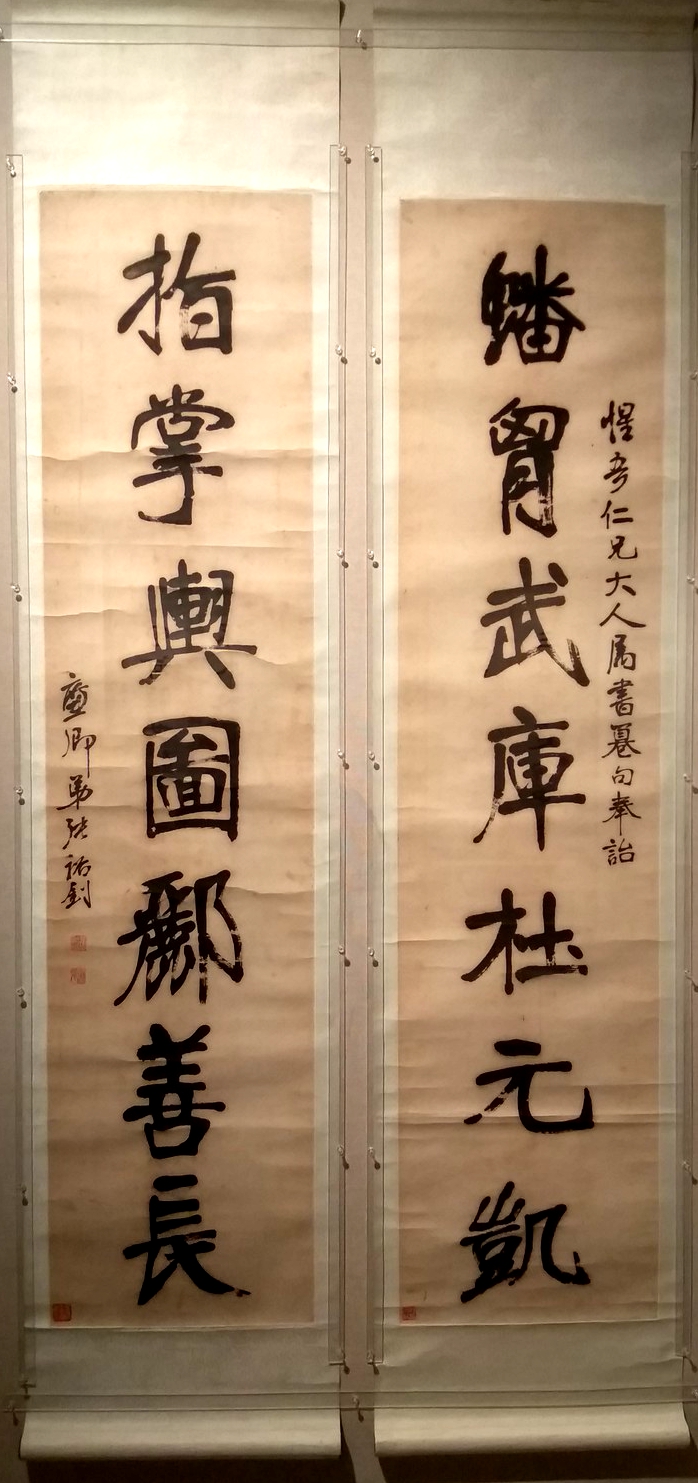 惺吾仁兄大人属書句奉詒
蟠胷武庫杜元凱
指掌輿圖酈善長
廉卿弟張裕釗